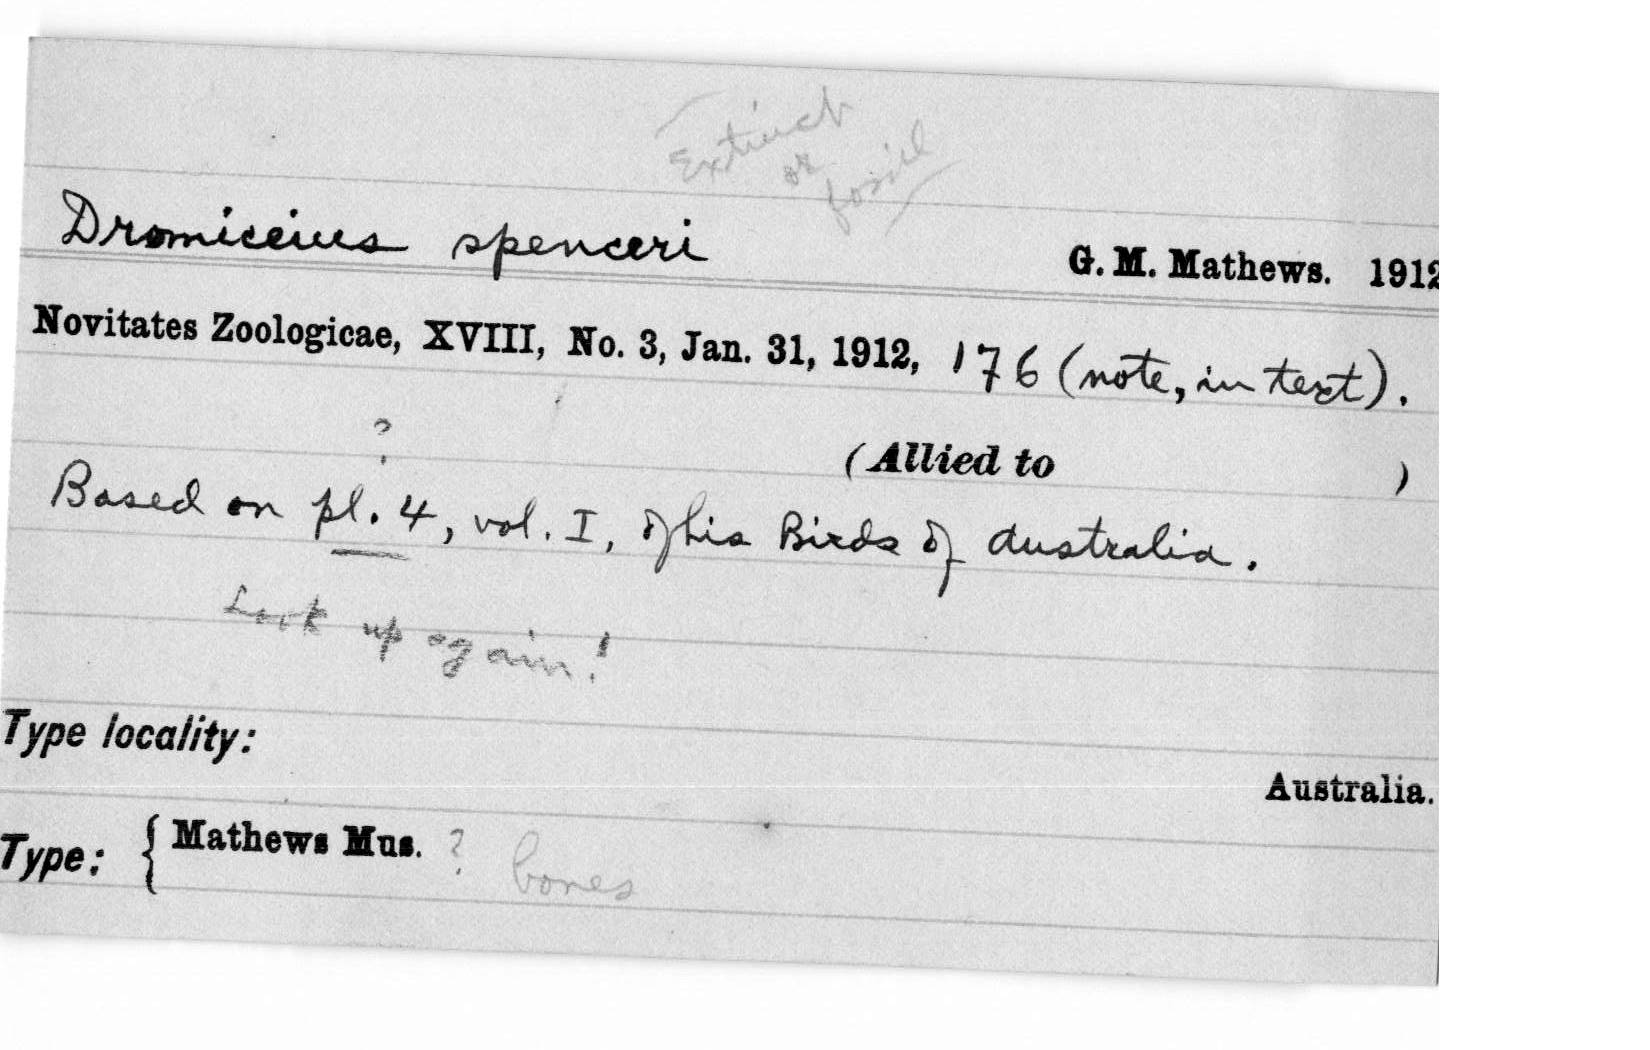 Extinct
or
fossil
Dromiceius spenceri
G. M. Mathews. 1912
Novitates Zoologicae, XVIII, No. 3, Jan. 31, 1912, 176 (note, in text).
?
(Allied to )
Based on pl. 4, vol. I, of his Birds of Australia.
Look up again!
Type locality:
Australia.
Type: { Mathews Mus. ? bones